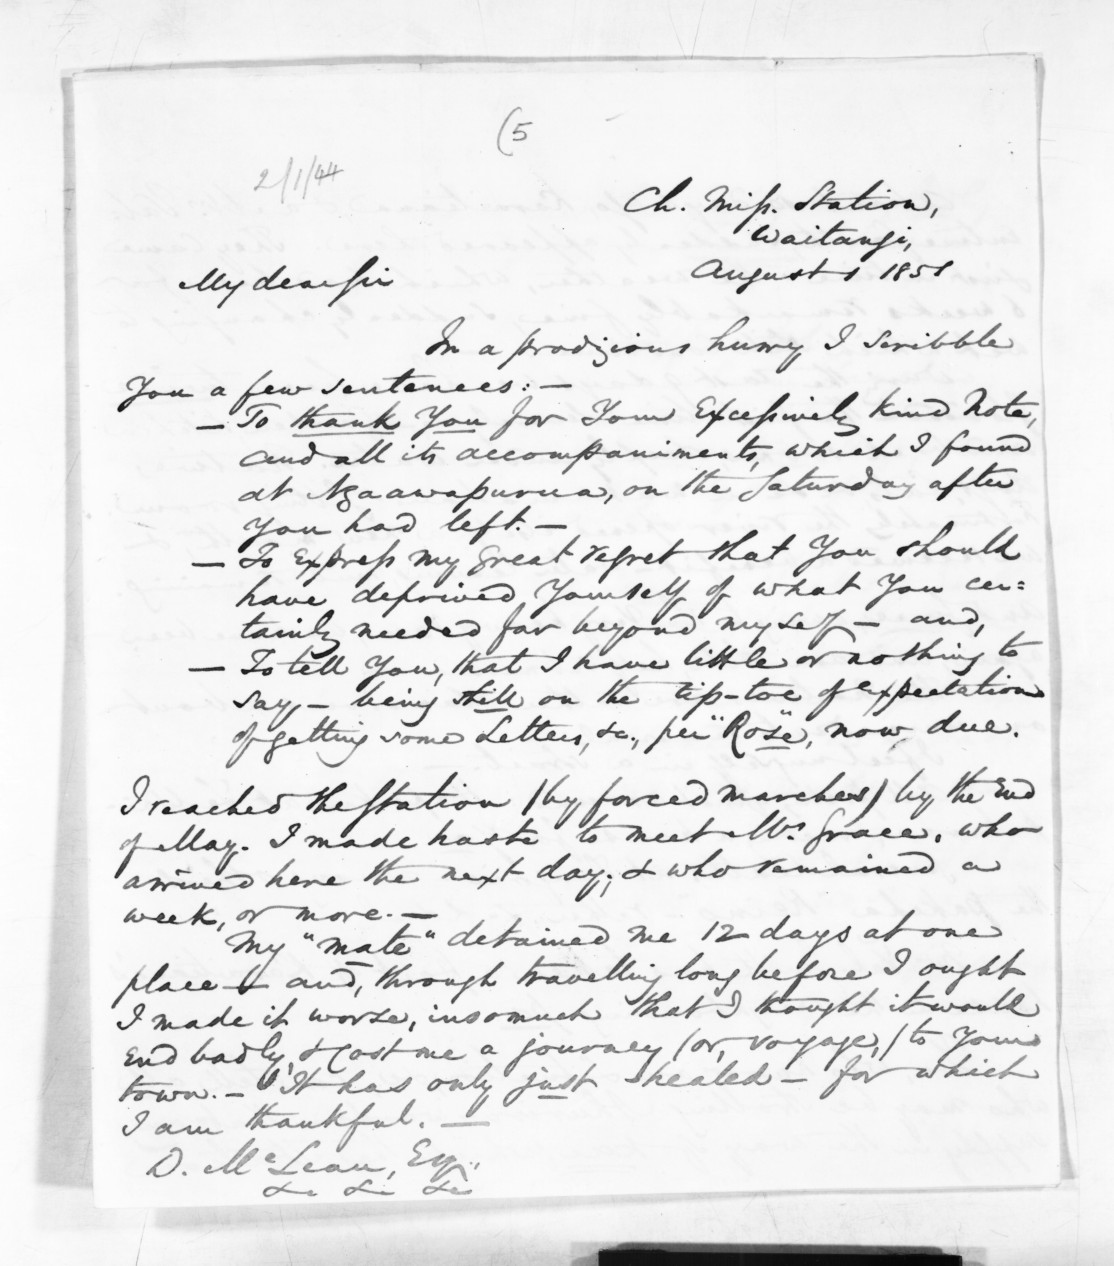 (5
2/1/44
Ch. Miss. Station,
Waitangi,
August 1 1851
My dear Sir
In a prodigious hurry I scribble
You a few sentences:—
— To thank You for Your Excessively kind Note,
and all its accompaniments, which I found
at Ngaawapurua, on the Saturday after
You had left.—
— To Express my great regret that You should
have deprived Yourself of what You cer=
tainly needed far beyond myself — and,
— To tell You, that I have little or nothing to
say, — being still on the tip-toe of expectation
of getting some Letters, &c., per "Rose", now due.
I reached the Station (by forced marches) by the End
of May. I made haste to meet Mr. Grace, who
arrived here the next day; & who remained a
week, or more.—
My "mate" detained me 12 days at one
place — and, through travelling long before I ought
I made it worse, insomuch that I thought it would
End badly, & cost me a journey (or, voyage,) to Your
town.— It has only just healed — for which
I am thankful.—
D. McLean, Esq.,
&c &c &c